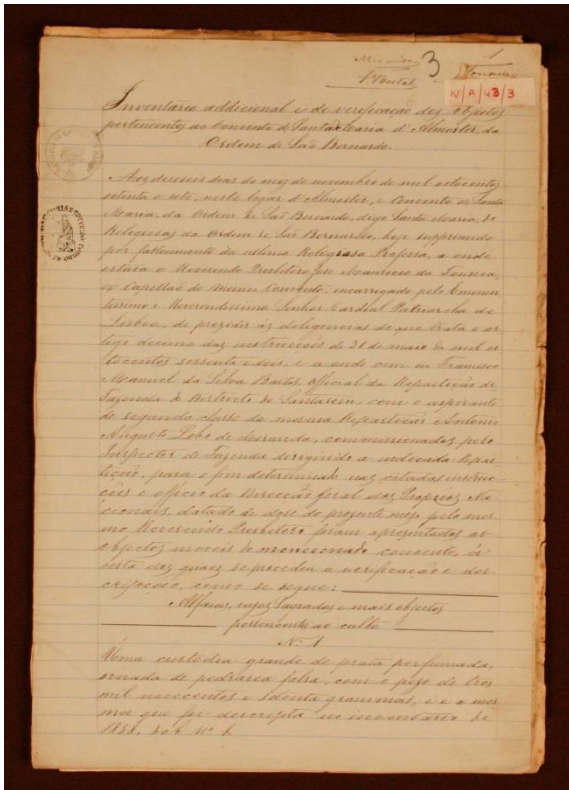 Miranda
3
1
P. Bastos
Fonseca
N/A/43/3
Inventario addicional e de verificação dos objectos
pertencentes ao Convento de Santa Maria d'Almoster, da
Ordem de São Bernardo.
Aos dezeseis dias do mez de novembro de mil oitocentos
oitenta e sete, neste logar d'Almoster, e Convento de Santa
Marca, da Ordem de São Bernardo, digo Santa Maria, de
Religiosas da Ordem de São Bernardo, hoje supprimido
por fallecimento da ultima Religiosa Professa, a onde
estava o Reverendo Presbitero José Mauricio da Fonseca,
Capellão do mesmo Convento, encarregado pelo Eminen
tissimo e Reverendissimo Senhor Cardial Patriarcha de
Lisboa, de proceder ás deligencias de que trata o ar
tigo decimo das instrucções de 31 de maio de mil oi
tocentos sessenta e dois, e a onde vim eu Francisco
Manuel da Silva Bastos Official da Repartição de
Fazenda do Districto de Santarem, com o aspirante
de segunda classe da mesma Repartição Antonio
Augusto Lobo de Miranda, commissionados pelo
Inspector de Fazenda dirigindo a indicada Repar
tição, para o fim determinado nas citadas instruc
ções e officio da Direcção Geral dos Proprios Na
cionais, datado de doze do prezente mez, pelo mes
mo Reverendo Presbitero foram apresentados os
objectos moveis do mencionado convento, á
vista dos quaes se procedeu a verificação e des
cripção, como se segue:
Alfaias, vasos Sagrados e mais objectos
pertencentes ao culto
N.º 1
Uma custodia grande de prata perfumada,
ornada de pedraria falsa, com o pezo de tres
mil novecentos e oitenta grammas, e é a mes
ma que foi descripta no inventario de
1858, sob nº 6